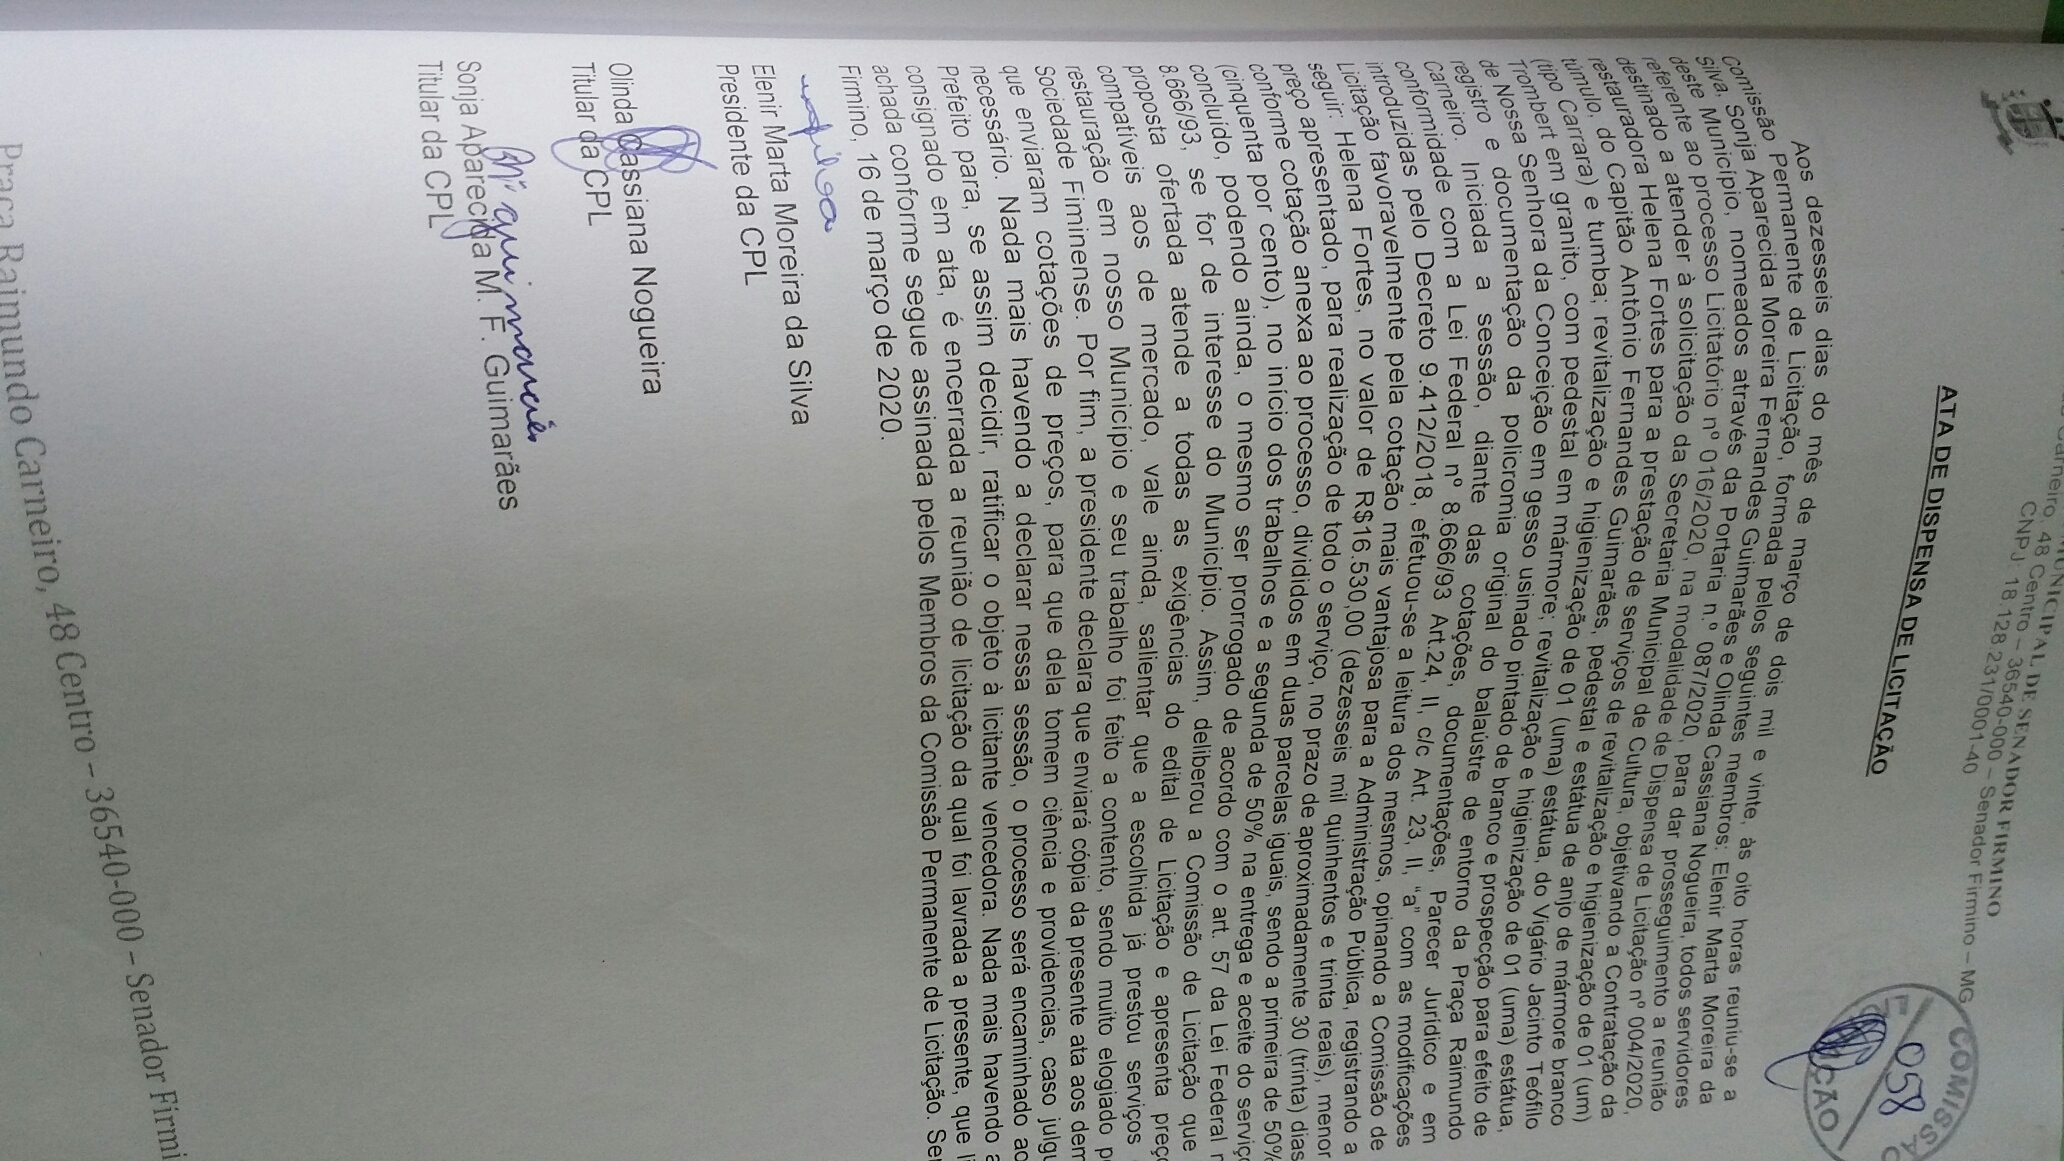 MUNICIPAL DE SENADOR FIRMINO
Carneiro, 48 Centro – 36540-000 – Senador Firmino – MG
CNPJ: 18.128 231/0001-40
COMISSÃO
058
ÇÃO
ATA DE DISPENSA DE LICITAÇÃO
Aos dezesseis dias do mês de março de dois mil e vinte, às oito horas reuniu-se a
Comissão Permanente de Licitação, formada pelos seguintes membros: Elenir Marta Moreira da
Silva, Sonja Aparecida Moreira Fernandes Guimarães e Olinda Cassiana Nogueira, todos servidores
deste Município, nomeados através da Portaria n.º 087/2020, para dar prosseguimento a reunião
referente ao processo Licitatório nº 016/2020, na modalidade de Dispensa de Licitação nº 004/2020,
destinado a atender à solicitação da Secretaria Municipal de Cultura, objetivando a Contratação da
restauradora Helena Fortes para a prestação de serviços de revitalização e higienização de 01 (um)
túmulo, do Capitão Antônio Fernandes Guimarães, pedestal e estátua de anjo de mármore branco
(tipo Carrara) e tumba; revitalização e higienização de 01 (uma) estátua, do Vigário Jacinto Teófilo
Trombert em granito, com pedestal em mármore; revitalização e higienização de 01 (uma) estátua,
de Nossa Senhora da Conceição em gesso usinado pintado de branco e prospecção para efeito de
registro e documentação da policromia original do balaústre de entorno da Praça Raimundo
Carneiro. Iniciada a sessão, diante das cotações, documentações, Parecer Jurídico e em
conformidade com a Lei Federal nº 8.666/93 Art.24, II, c/c Art. 23, II, “a” com as modificações
introduzidas pelo Decreto 9.412/2018, efetuou-se a leitura dos mesmos, opinando a Comissão de
Licitação favoravelmente pela cotação mais vantajosa para a Administração Pública, registrando a
seguir: Helena Fortes, no valor de R$16.530,00 (dezesseis mil quinhentos e trinta reais), menor
preço apresentado, para realização de todo o serviço, no prazo de aproximadamente 30 (trinta) dias
conforme cotação anexa ao processo, divididos em duas parcelas iguais, sendo a primeira de 50%
(cinquenta por cento), no início dos trabalhos e a segunda de 50% na entrega e aceite do serviço
concluído, podendo ainda, o mesmo ser prorrogado de acordo com o art. 57 da Lei Federal
8.666/93, se for de interesse do Município. Assim, deliberou a Comissão de Licitação que
proposta ofertada atende a todas as exigências do edital de Licitação e apresenta preço
compatíveis aos de mercado, vale ainda, salientar que a escolhida já prestou serviços
restauração em nosso Município e seu trabalho foi feito a contento, sendo muito elogiado
Sociedade Fiminense. Por fim, a presidente declara que enviará cópia da presente ata aos dem
que enviaram cotações de preços, para que dela tomem ciência e providencias, caso julgu
necessário. Nada mais havendo a declarar nessa sessão, o processo será encaminhado ao
Prefeito para, se assim decidir, ratificar o objeto à licitante vencedora. Nada mais havendo a
consignado em ata, é encerrada a reunião de licitação da qual foi lavrada a presente, que l
achada conforme segue assinada pelos Membros da Comissão Permanente de Licitação. Se
Firmino, 16 de março de 2020.
Elenir Marta Moreira da Silva
Presidente da CPL
Olinda Cassiana Nogueira
Titular da CPL
Guimarães
Sonja Aparecida M. F. Guimarães
Titular da CPL
Praça Raimundo Carneiro, 48 Centro – 36540-000 – Senador Firmi